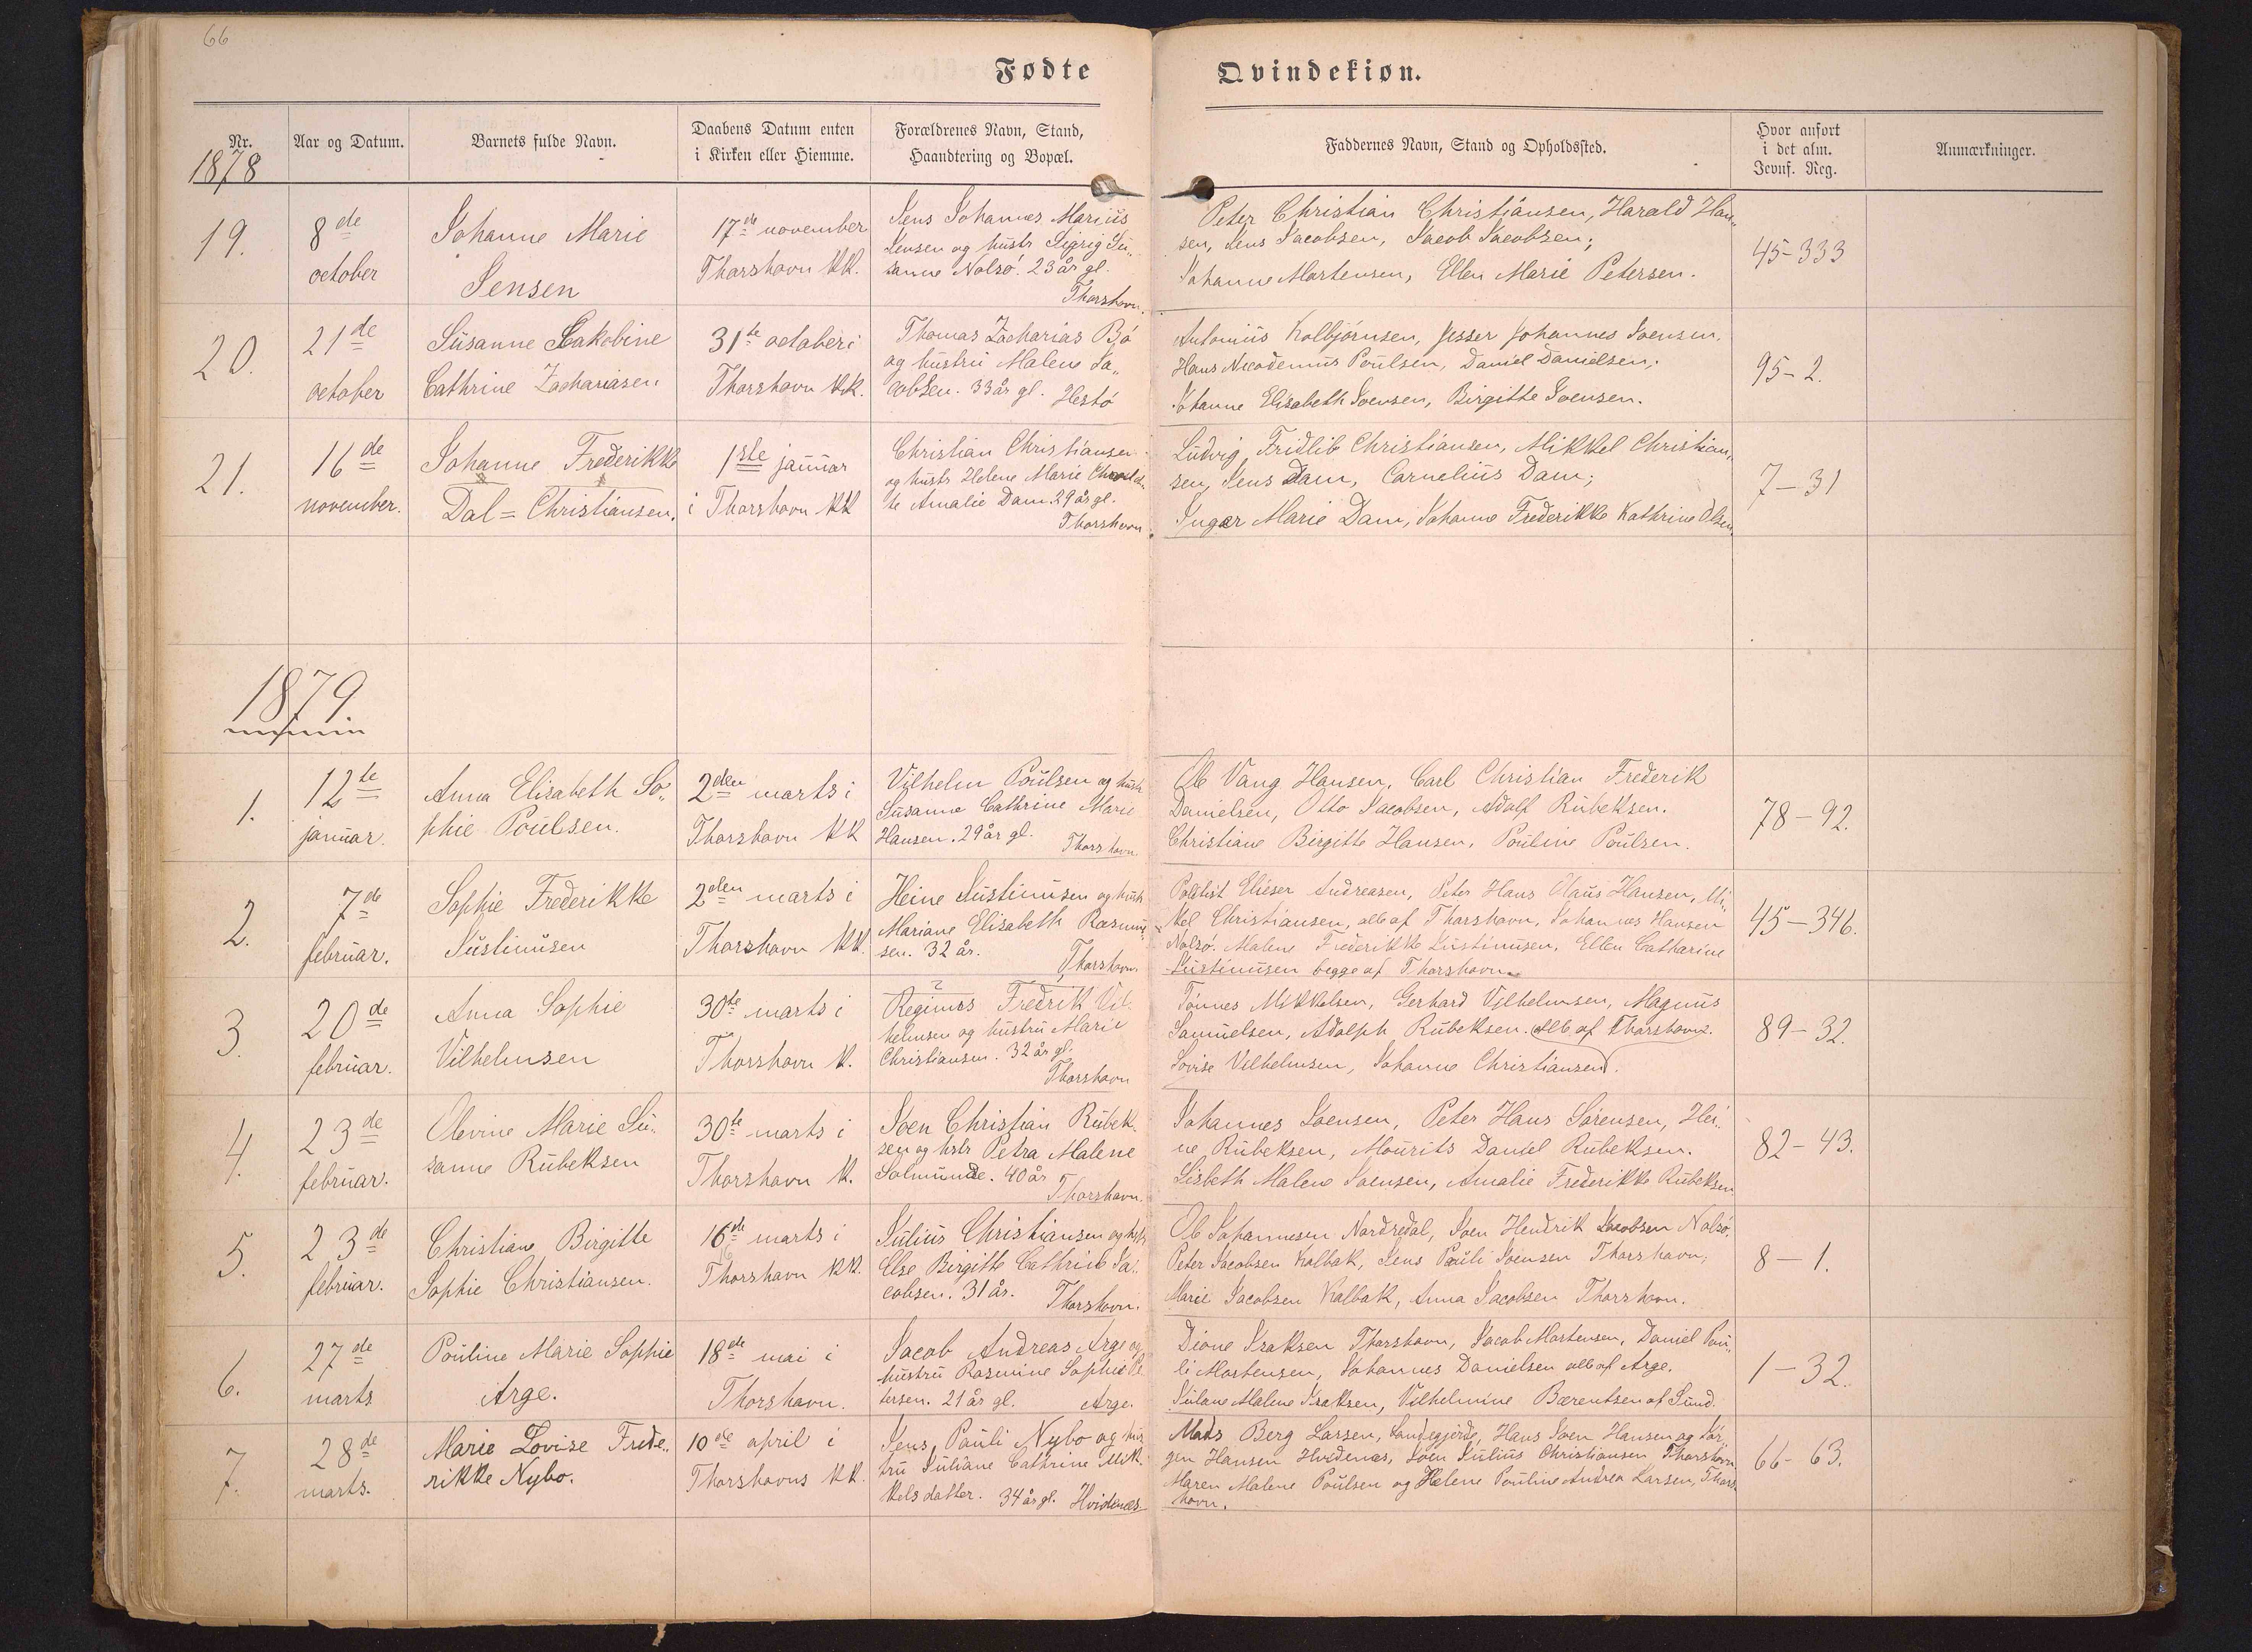 66
Fødte Qvindekiøn.
Nr. Aar og Datum. Barnets fulde Navn. Daabens Datum enten i Kirken eller Hiemme. Forældrenes Navn, Stand, Haandtering og Bopæl. Faddernes Navn, Stand og Opholdssted. Hvor anført i det alm. Jevnf. Reg. Anmærkninger.
1878
19.
8de
october
Johanne Marie
Jensen
17de november
Thorshavn KK.
Jens Johannes Marius
Jensen og hustr Sigrig Su„
sanne Nolsø. 23 år gl.
Thorshavn.
Peter Christian Christiansen, Harald Han„
sen, Jens Jacobsen, Jacob Jacobsen;
Johanne Martensen, Ellen Marie Petersen.
45-333
20.
21de
october
Susanne Jakobine
Cathrine Zachariasen
31te october i
Thorshavn KK.
Thomas Zacharias Bø
og hustru Malene Ja„
cobsen. 33 år gl. Hestø
Antonius Kolbjørnsen, Jesser Johannes Joensen,
Hans Nicodemus Poulsen, Daniel Danielsen;
Johanne Elisabeth Joensen, Birgitte Joensen.
95-2.
21.
16de
november.
Johanne Frederikke
Dal=Christiansen.
1ste januar
i Thorshavn KK
Christian Christiansen
og hustr Helene Marie
te Amalie Dam. 29 år gl.
Thorshavn
Ludvig Fridlib Christiansen, Mikkel Christian„
sen, Jens Dam, Cornelius Dam;
Inger Marie Dam, Johanne Frederikke Kathrine Olsen.
7-31
1879.
1.
12te
januar.
Anna Elisabeth So„
phie Poulsen.
2den marts i
Thorshavn KK
Vilhelm Poulsen og hustr
Susanne Cathrine Marie
Hansen. 29 år gl.
Thorshavn.
Ole Vang Hansen, Carl Christian Frederik
Danielsen, Otto Jacobsen, Adolf Rubeksen.
Christiane Birgitte Hansen, Pouline Poulsen.
78-92.
2.
7de
februar.
Sophie Frederikke
Justinusen
2den marts i
Thorshavn KK.
Heine Justinusen og hustr
Mariane Elisabeth Rasmus„
sen. 32 år.
Thorshavn
Elieser Andreasen, Peter Hans Olaus Hansen, Mi„
kkel Christiansen, alle af Thorshavn, Johannes Hansen
Nolsø. Malene Frederikke Justinusen, Ellen Catharine
Justinusen begge af Thorshavn
45-346.
3.
20de
februar.
Anna Sophie
Vilhelmsen
30te marts i
Thorshavn K.
Regimes Fredrik Vil
helmsen og hustru Marie
Christiansen. 32 år gl.
Thorshavn
Tønnes Mikkelsen, Gerhard Vilhelmsen, Magnus
Samuelsen, Adolph Rubeksen. Alle af Thorshavn.
Lovise Vilhelmsen, Johanne Christiansen.
89-32.
4.
23de
februar.
Olevine Marie Su„
sanne Rubeksen
30te marts i
Thorshavn K.
Joen Christian Rubek„
sen og hstr Petra Malene
Solmunde. 40 år
Thorshavn.
Johannes Joensen, Peter Hans Sørensen, Hei„
ne Rubeksen, Mourits Daniel Rubeksen.
Lisbeth Malene Joensen, Amalie Frederikke Rubeksen
82-43.
5.
23de
februar.
Christiane Birgitte
Sophie Christiansen.
16de marts i
Thorshavn KK.
Julius Christiansen og hstr
Else Birgitte Cathrine Ja„
cobsen. 31 år.
Thorshavn.
Ole Johannesen Nordredal, Joen Hendrik Jacobsen Nolsø,
Peter Jacobsen Kalbak, Jens Pauli Joensen Thorshavn;
Marie Jacobsen Kalbak, Anna Jacobsen Thorshavn.
8-1.
6.
27de
marts
Pouline Marie Sophie
Arge.
18de mai i
Thorshavn.
Jacob Andreas Arge og
hustru Rasmine Sophie Pe
tersen. 21 år gl. Arge.
Dione Isaksen Thorshavn, Jacob Mortensen, Daniel Pou„
li Mortensen, Johannes Danielsen alle af Arge.
Juliane Malene Isaksen, Vilhelmine Bærentsen af Sund.
1-32.
7.
28de
marts.
Marie Lovise Frede„
rikke Nybo.
10de april i
Thorshavns KK.
Jens Pauli Nybo og hus
tru Juliane Cathrine Mik„
kelsdatter. 34 år gl. Hvidenæs
Mads Berg Larsen, Sandegjørde, Hans Joen Hansen og Jør„
gen Hansen Hvidenæs, Joen Julius Christiansen Thorshavn
Maren Malene Poulsen og Helene Pouline Andrea Larsen, Thors
havn.
66-63.